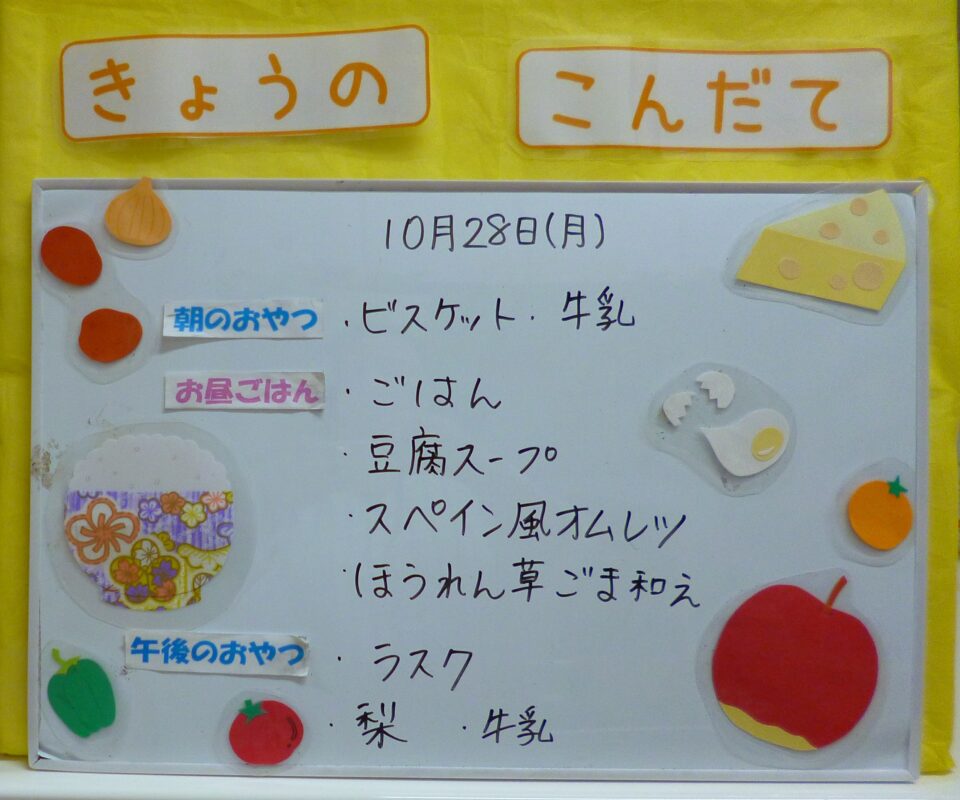 きょうの こんだて
10月28日(月)
朝のおやつ ・ビスケット・牛乳
お昼ごはん ・ごはん
・豆腐スープ
・スペイン風オムレツ
・ほうれん草ごま和え
午後のおやつ ・ラスク
・梨 ・牛乳